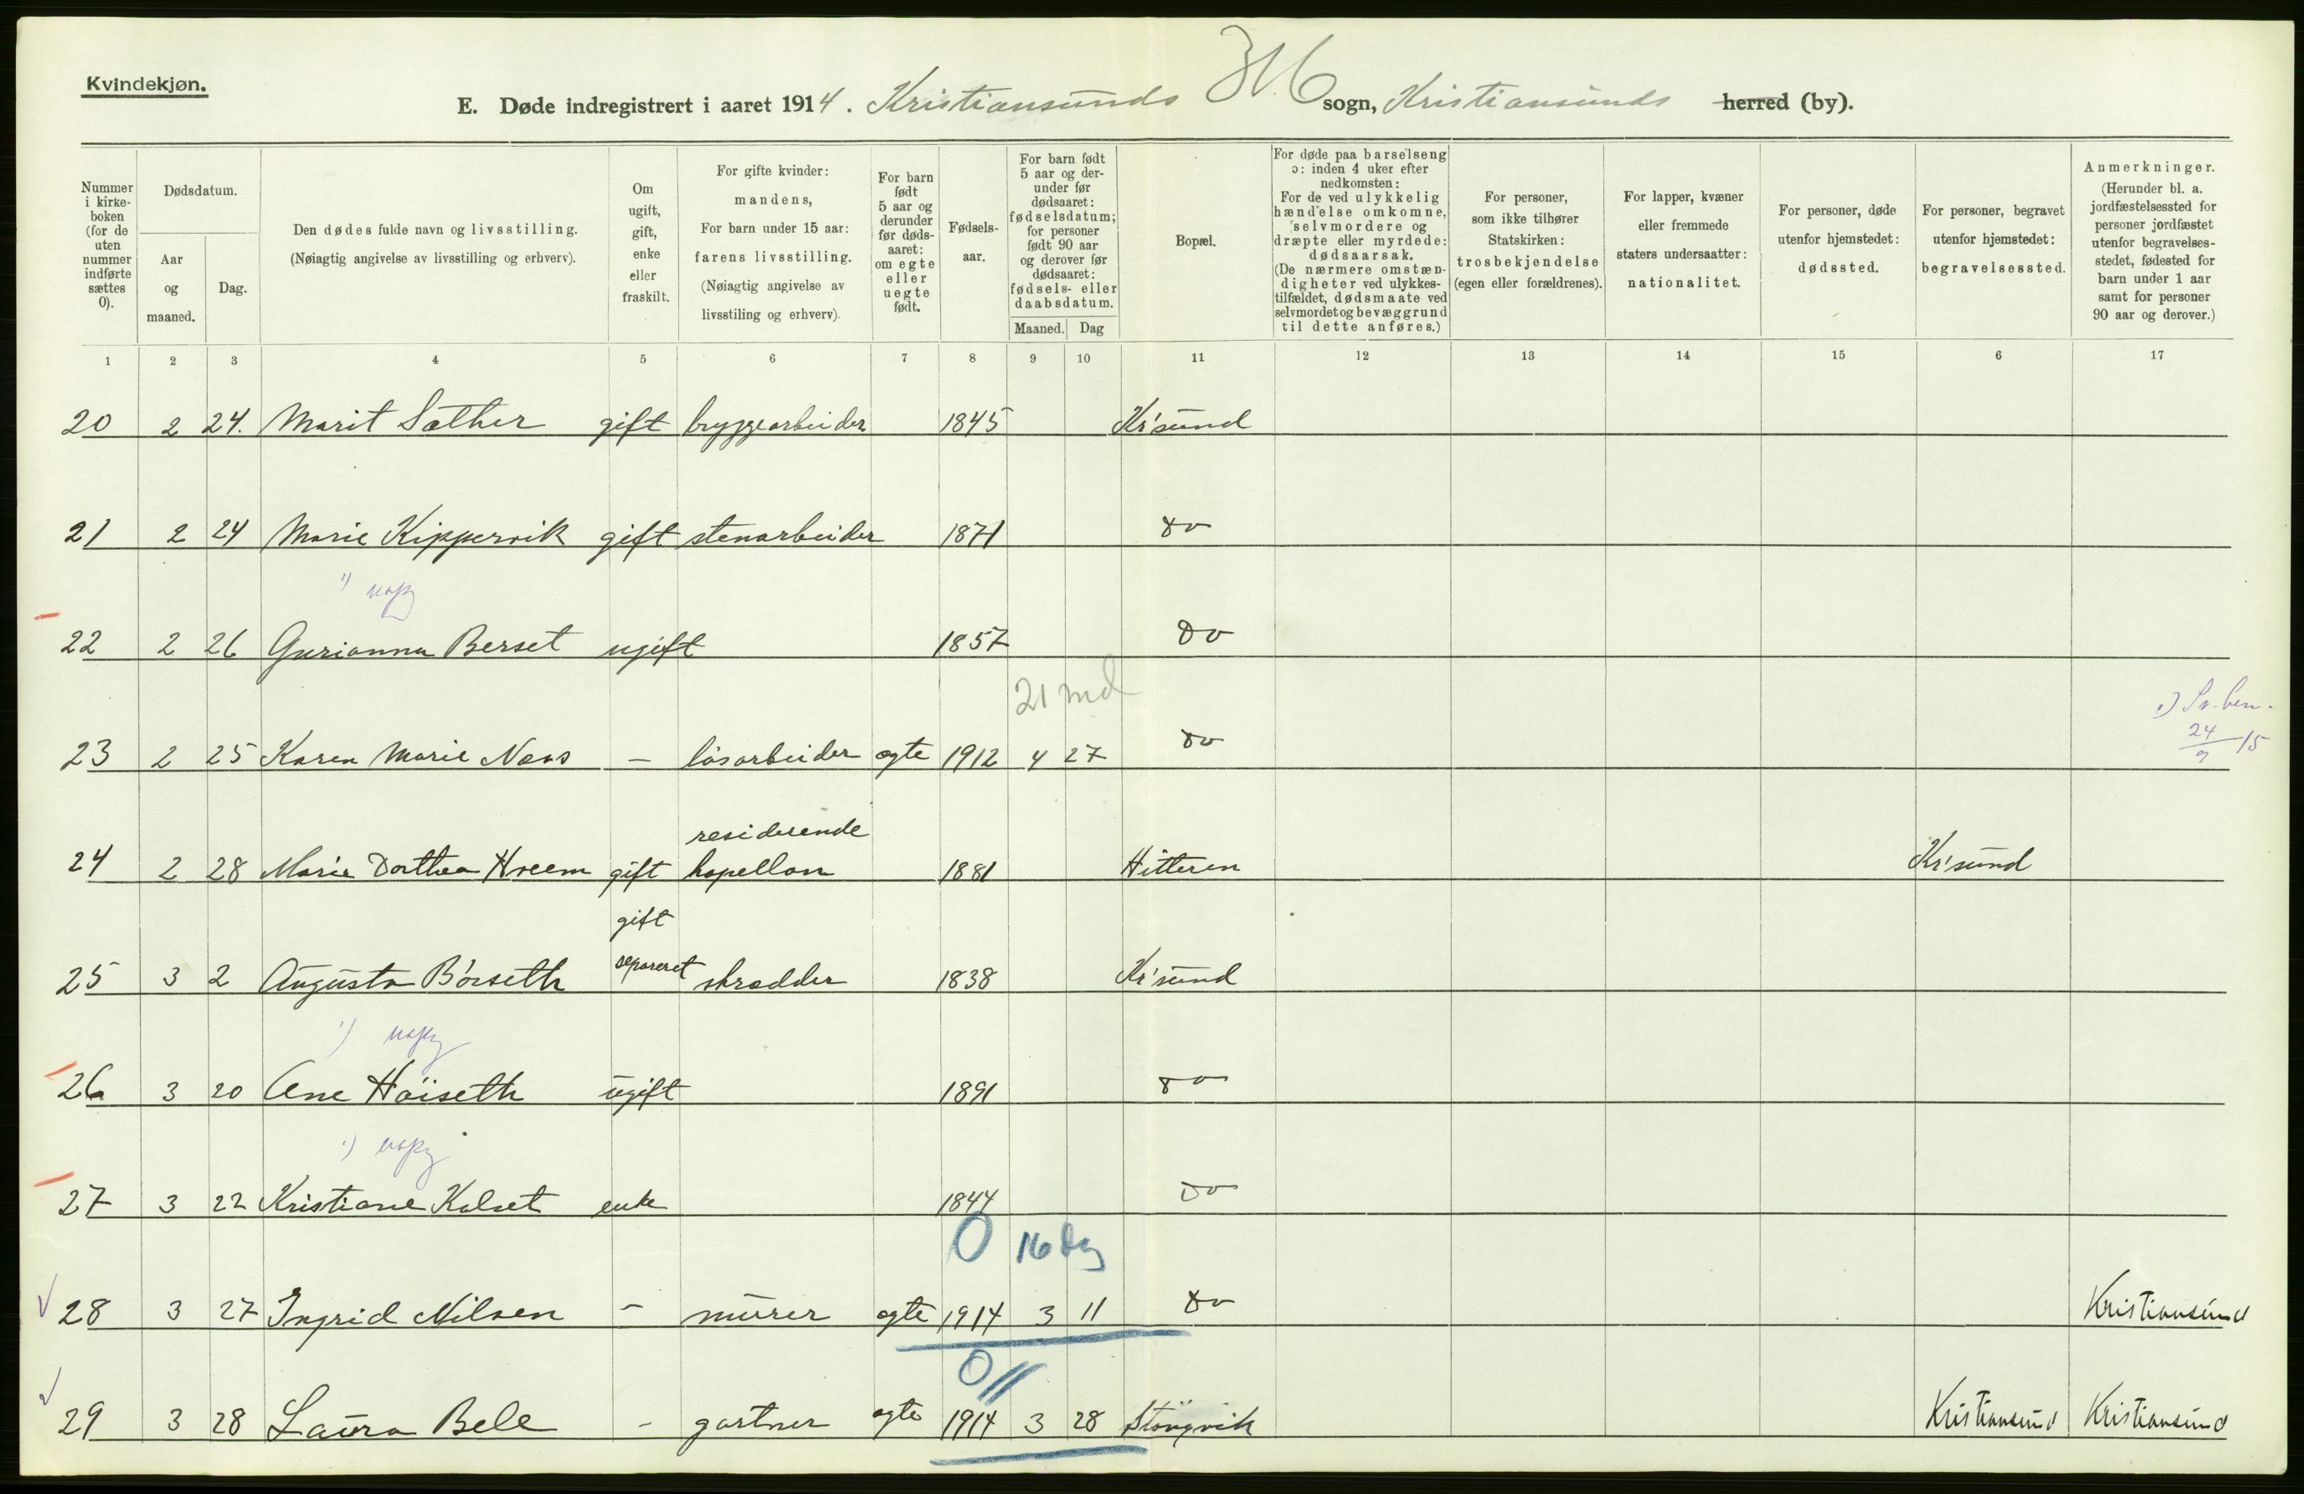 Kvindekjøn.
E. Døde indregistrert i aaret 1914. Kristiansunds sogn, Kristiansunds herred (by).
Nummer i kirke-boken (for de uten nummer indførte sættes 0).
Dødsdatum.
Aar og maaned.
Dag.
Den dødes fulde navn og livsstilling.
(Nøiagtig angivelse av livsstilling og erhverv).
Om ugift, gift, enke eller fraskilt.
For gifte kvinder: mandens,
For barn under 15 aar: farens livsstilling.
(Nøiagtig angivelse av livsstiling og erhverv).
For barn født 5 aar og derunder før døds-aaret: om egte eller uegte født.
Fødsels-aar.
For barn født 5 aar og der-under før dødsaaret: fødselsdatum; for personer født 90 aar og derover før dødsaaret: fødsels- eller daabsdatum.
Maaned. Dag
Bopæl.
For døde paa barselseng ɔ: inden 4 uker efter nedkomsten:
For de ved ulykkelig hændelse omkomne, selvmordere og dræpte eller myrdede: dødsaarsak.
(De nærmere omstæn-digheter ved ulykkes-tilfældet, dødsmaate ved selvmordet og bevæggrund til dette anføres.)
For personer, som ikke tilhører Statskirken: trosbekjendelse (egen eller forældrenes).
For lapper, kvæner eller fremmede staters undersaatter: nationalitet.
For personer, døde utenfor hjemstedet: dødssted.
For personer, begravet utenfor hjemstedet: begravelsessted.
Anmerkninger.
(Herunder bl. a. jordfæstelsessted for personer jordfæstet utenfor begravelses-stedet, fødested for barn under 1 aar samt for personer 90 aar og derover.)
1 2 3 4 5 6 7 8 9 10 11 12 13 14 15 6 17
20 2 24. Marit Sæther gift bryggearbeider 1845 Kr'sund
21 2 24 Marie Kippervik gift stenarbeider 1871 Do
22 2 26 Gurianna Berset ugift 1857 Do
21 md
23 2 25 Karen Marie Næss – løsarbeider egte 1912 4 27 Do
24/9 15
residerende
24 2 28 Marie Dorthea Hreem gift kapellan 1881 Hitteren Kr'sund
gift
25 3 2 Augusta Børseth separeret skrædder 1838 Kr'sund
26 3 20 Ane Høiseth ugift 1891 Do
27 3 22 Kristiane Kalset enke 1844 Do
0 16 Dg
28 3 27 Ingrid Nilsen – murer egte 1914 3 11 Do Kristiansund
0 //
29 3 28 Laura Bele – gartner egte 1914 3 28 Stangvik Kristiansund Kristiansund